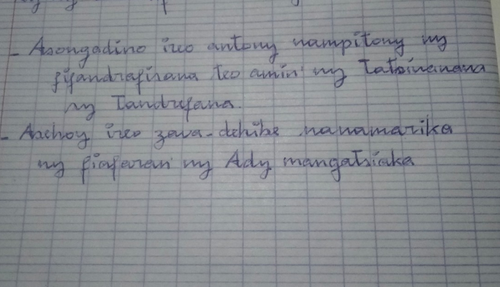 - Asongadino ireo antony nampitony ny
fifandrafisana teo amin' ny Tatsinanana
ny Tandrefana.
- Asehoy ireo zava-dehibe nanamarika
ny fiafaran' ny Ady mangatsiaka